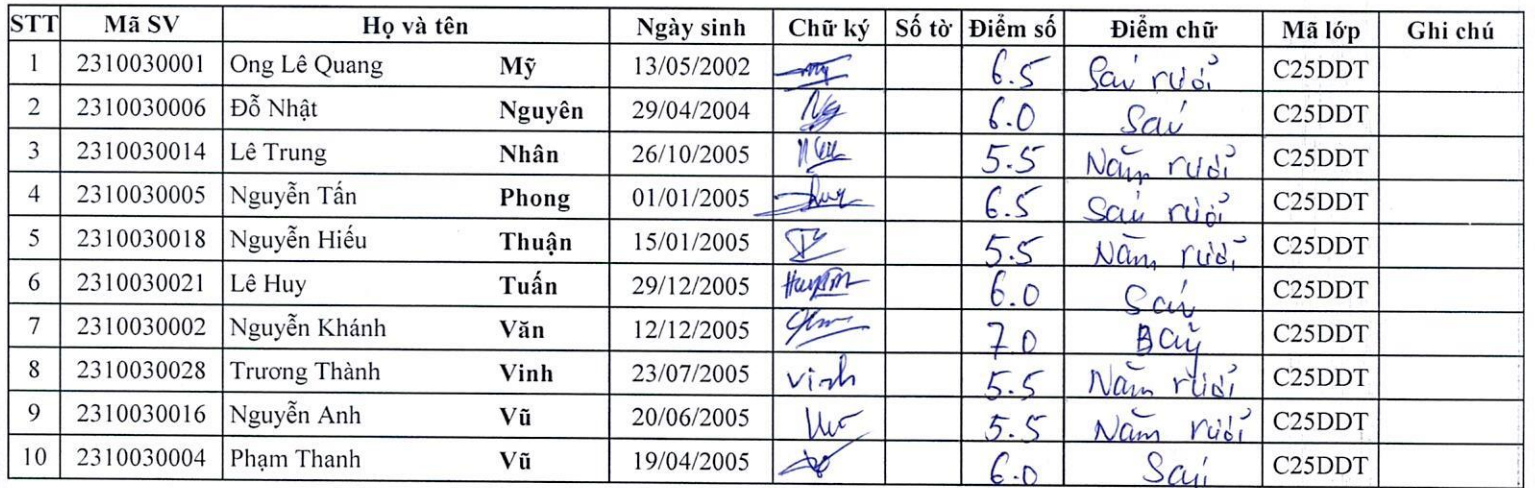 STT Mã SV Họ và tên Ngày sinh Chữ ký Số tờ Điểm số Điểm chữ Mã lớp Ghi chú
1 2310030001 Ong Lê Quang Mỹ 13/05/2002 6.5 Sáu rưỡi C25DDT
2 2310030006 Đỗ Nhật Nguyên 29/04/2004 Ng 6.0 Sáu C25DDT
3 2310030014 Lê Trung Nhân 26/10/2005 5.5 Năm rưỡi C25DDT
4 2310030005 Nguyễn Tấn Phong 01/01/2005 6.5 Sáu rưỡi C25DDT
5 2310030018 Nguyễn Hiếu Thuận 15/01/2005 5.5 Năm rưỡi C25DDT
6 2310030021 Lê Huy Tuấn 29/12/2005 6.0 Sáu C25DDT
7 2310030002 Nguyễn Khánh Văn 12/12/2005 7.0 Bảy C25DDT
8 2310030028 Trương Thành Vinh 23/07/2005 Vinh 5.5 Năm rưỡi C25DDT
9 2310030016 Nguyễn Anh Vũ 20/06/2005 5.5 Năm rưỡi C25DDT
10 2310030004 Phạm Thanh Vũ 19/04/2005 6.0 Sáu C25DDT